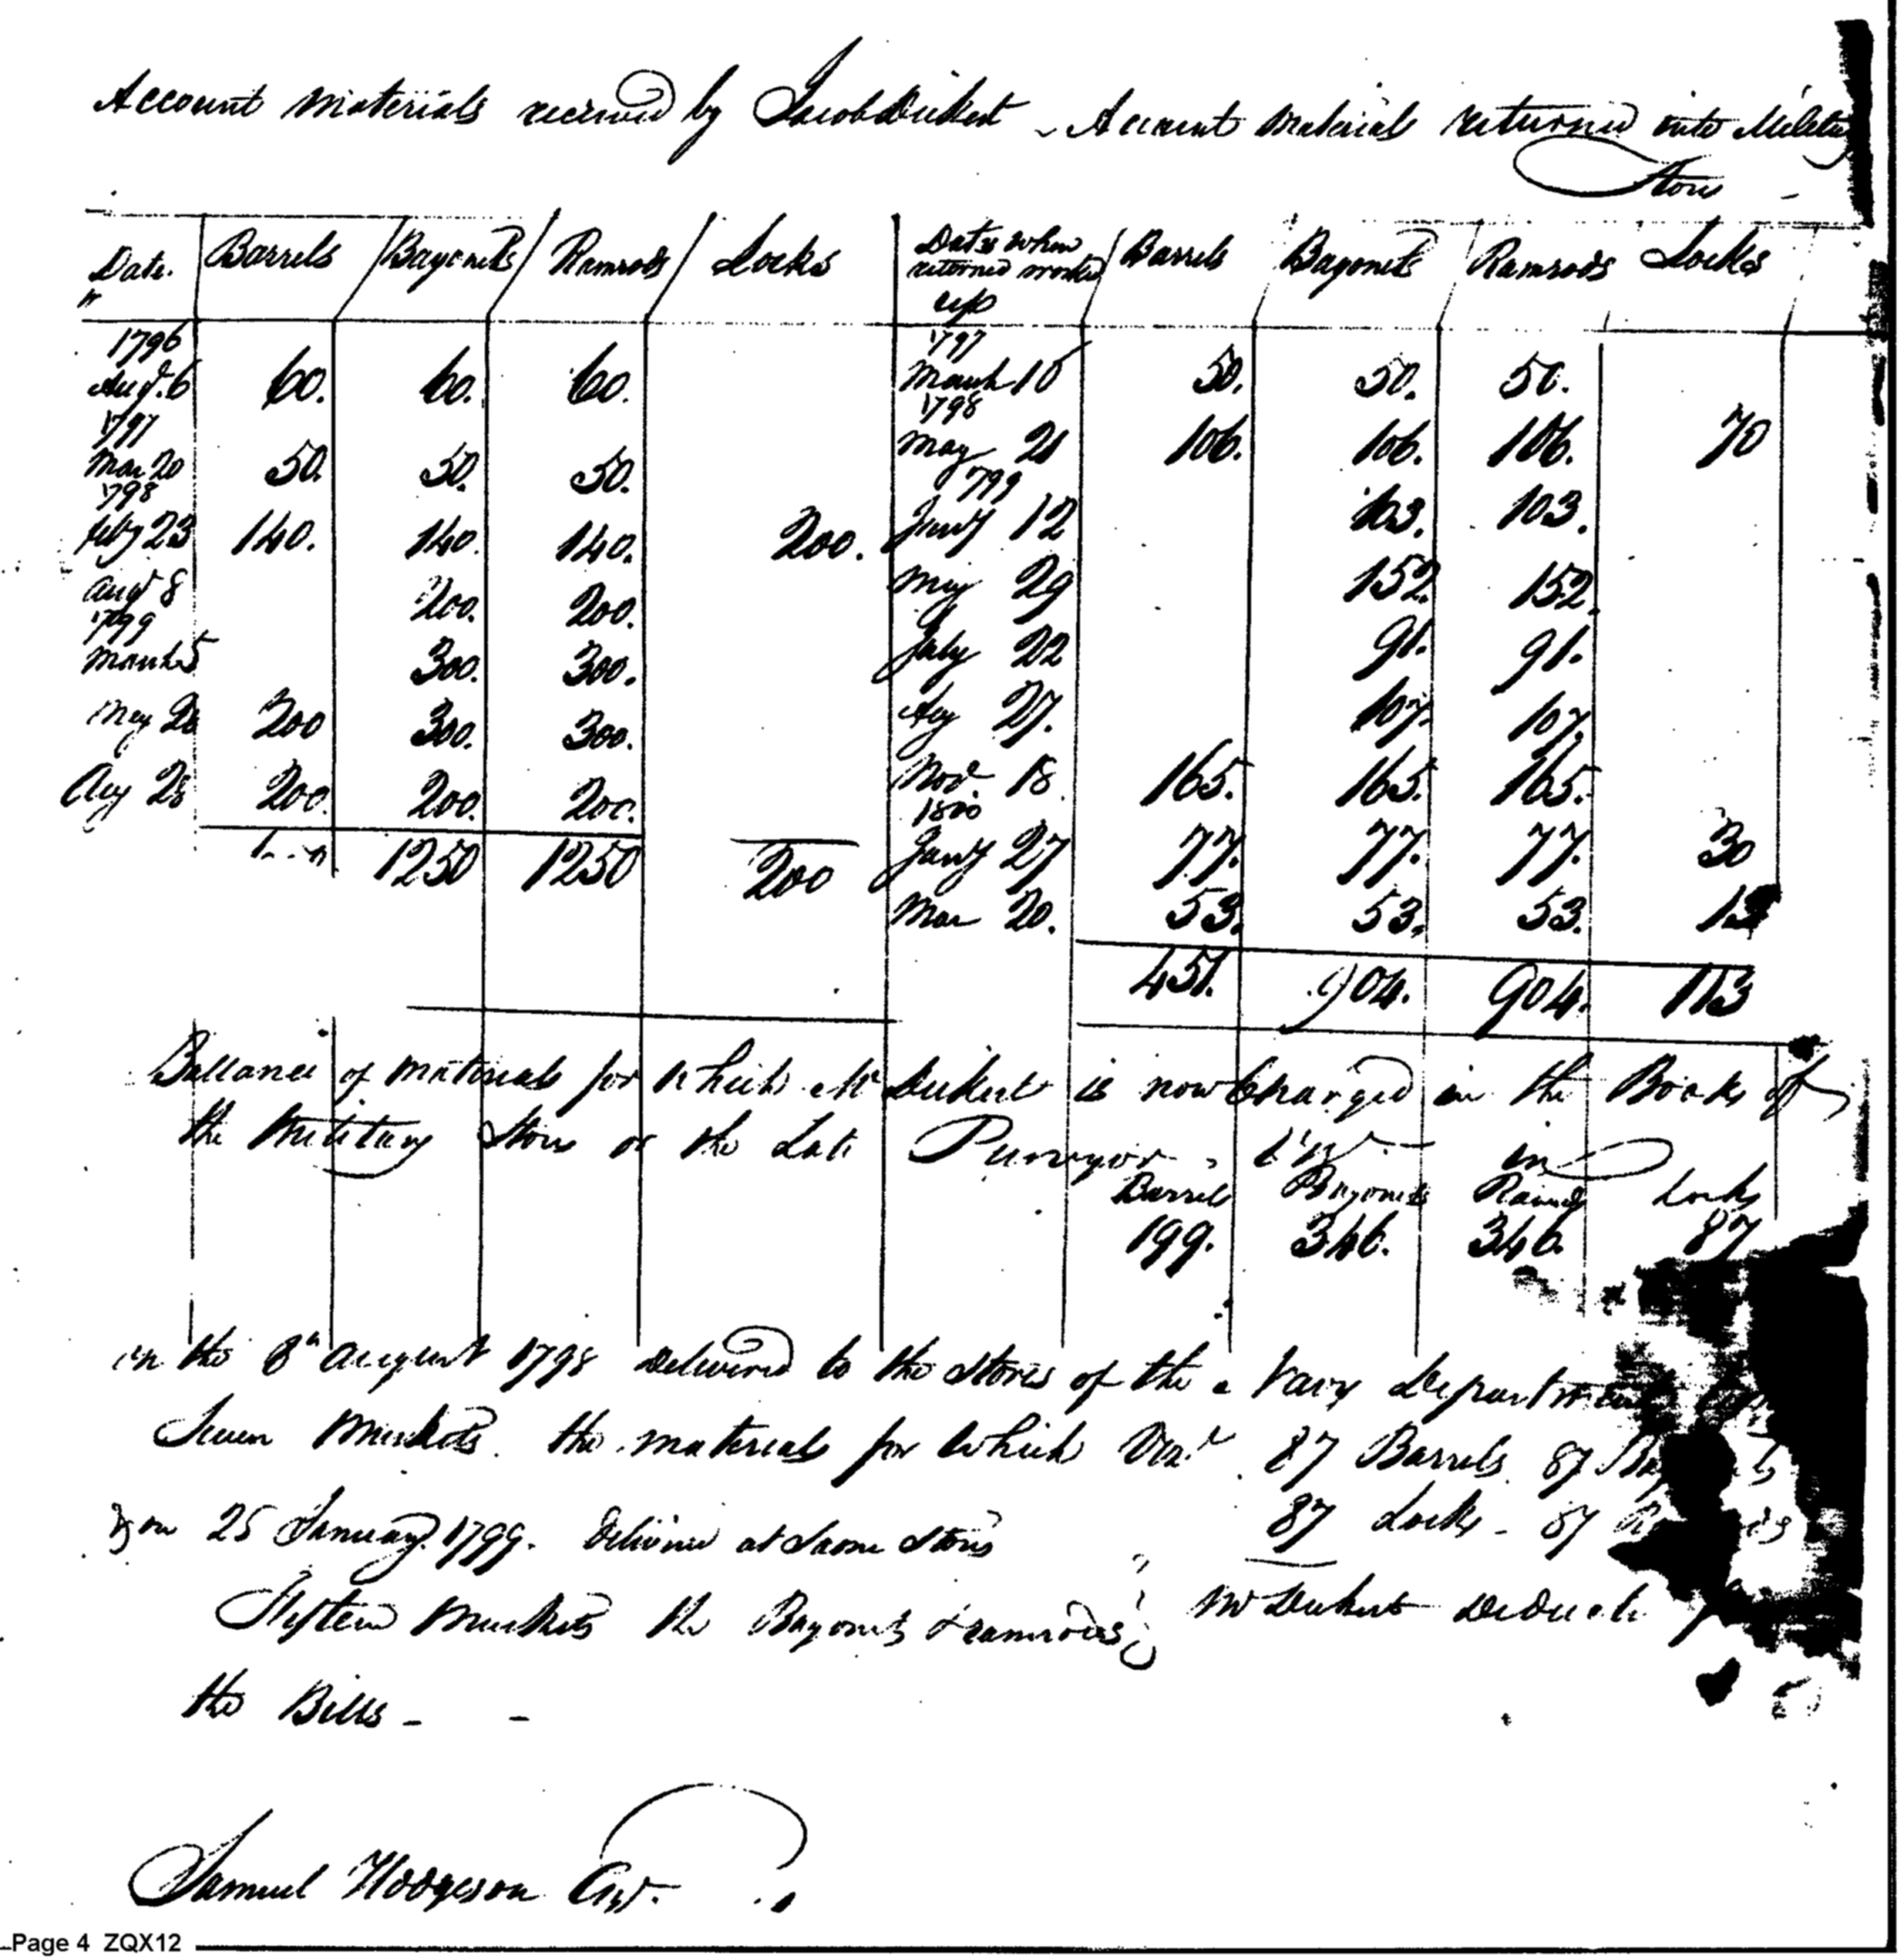 Account Materials received by Jacob Dickert - Account Material returned into Military
Store -
Date. Barrels Bayonets Ramrods Locks Dates when returned worked up Barrels Bayonets Ramrods Locks
1796 1797
Augt. 6 60. 60. 60. March 10 50. 50. 50.
1797 1798
Mar 20 50. 50. 50. May 21 106. 106. 106. 70
1798 1799
Feby 23 140. 140. 140. 200. Jany 12 103. 103.
Augt 8 200. 200. May 29 152. 152.
1799
March 5 300. 300. July 22 91. 91.
May 200 300. 300. Aug 27. 107. 107.
Aug 28 200 200. 200. Nov. 18 165. 165. 165.
1800
1250 1250 200 Jany 27 77. 77. 77. 30
Mar 20. 53. 53. 53. 13
451. 904. 904. 113
Ballance of Materials for Which Mr Dickert is now Charged in the Books of
the Military Store or the Late Purveyor,
Barrels Bayonets Locks
199. 346. 346. 87
on the 8th August 1798 delivered to the Stores of the Navy Department
Seven Muskets. the materials for Which 87 Barrels. 87
87 Locks - 87
& on 25 January 1799. Delivered at Same Stores
Fifteen Muskets the Bayonets & ramrods Mr Dickert
the Bills - -
Samuel Hodgson
Page 4 ZQX12